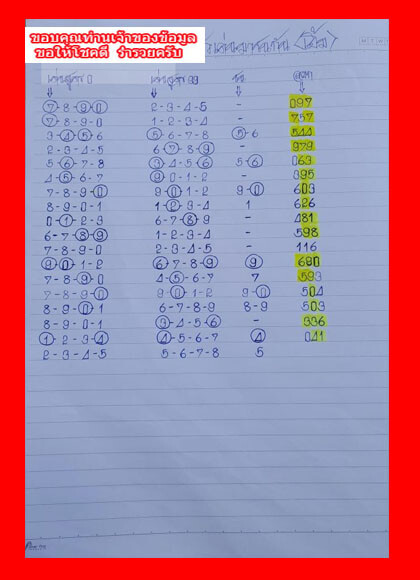 ขอบคุณท่านเจ้าของข้อมูล
ขอให้โชคดี ร่ำรวยครับ
7-8-9-0 2-3-4-5 - 097
7-8-9-0 1-2-3-4 - 757
3-4-5-6 5-6-7-8 5-6 544
2-3-4-5 6-7-8-9 - 979
5-6-7-8 3-4-5-6 5-6 063
4-5-6-7 9-0-1-2 - 395
7-8-9-0 9-0-1-2 9-0 603
8-9-0-1 1-2-3-4 1 626
0-1-2-3 6-7-8-9 - 481
6-7-8-9 1-2-3-4 - 598
7-8-9-0 2-3-4-5 - 116
9-0-1-2 6-7-8-9 9 690
7-8-9-0 4-5-6-7 7 593
7-8-9-0 9-0-1-2 9-0 504
8-9-0-1 6-7-8-9 8-9 503
8-9-0-1 3-4-5-6 - 336
1-2-3-4 4-5-6-7 4 041
2-3-4-5 5-6-7-8 5